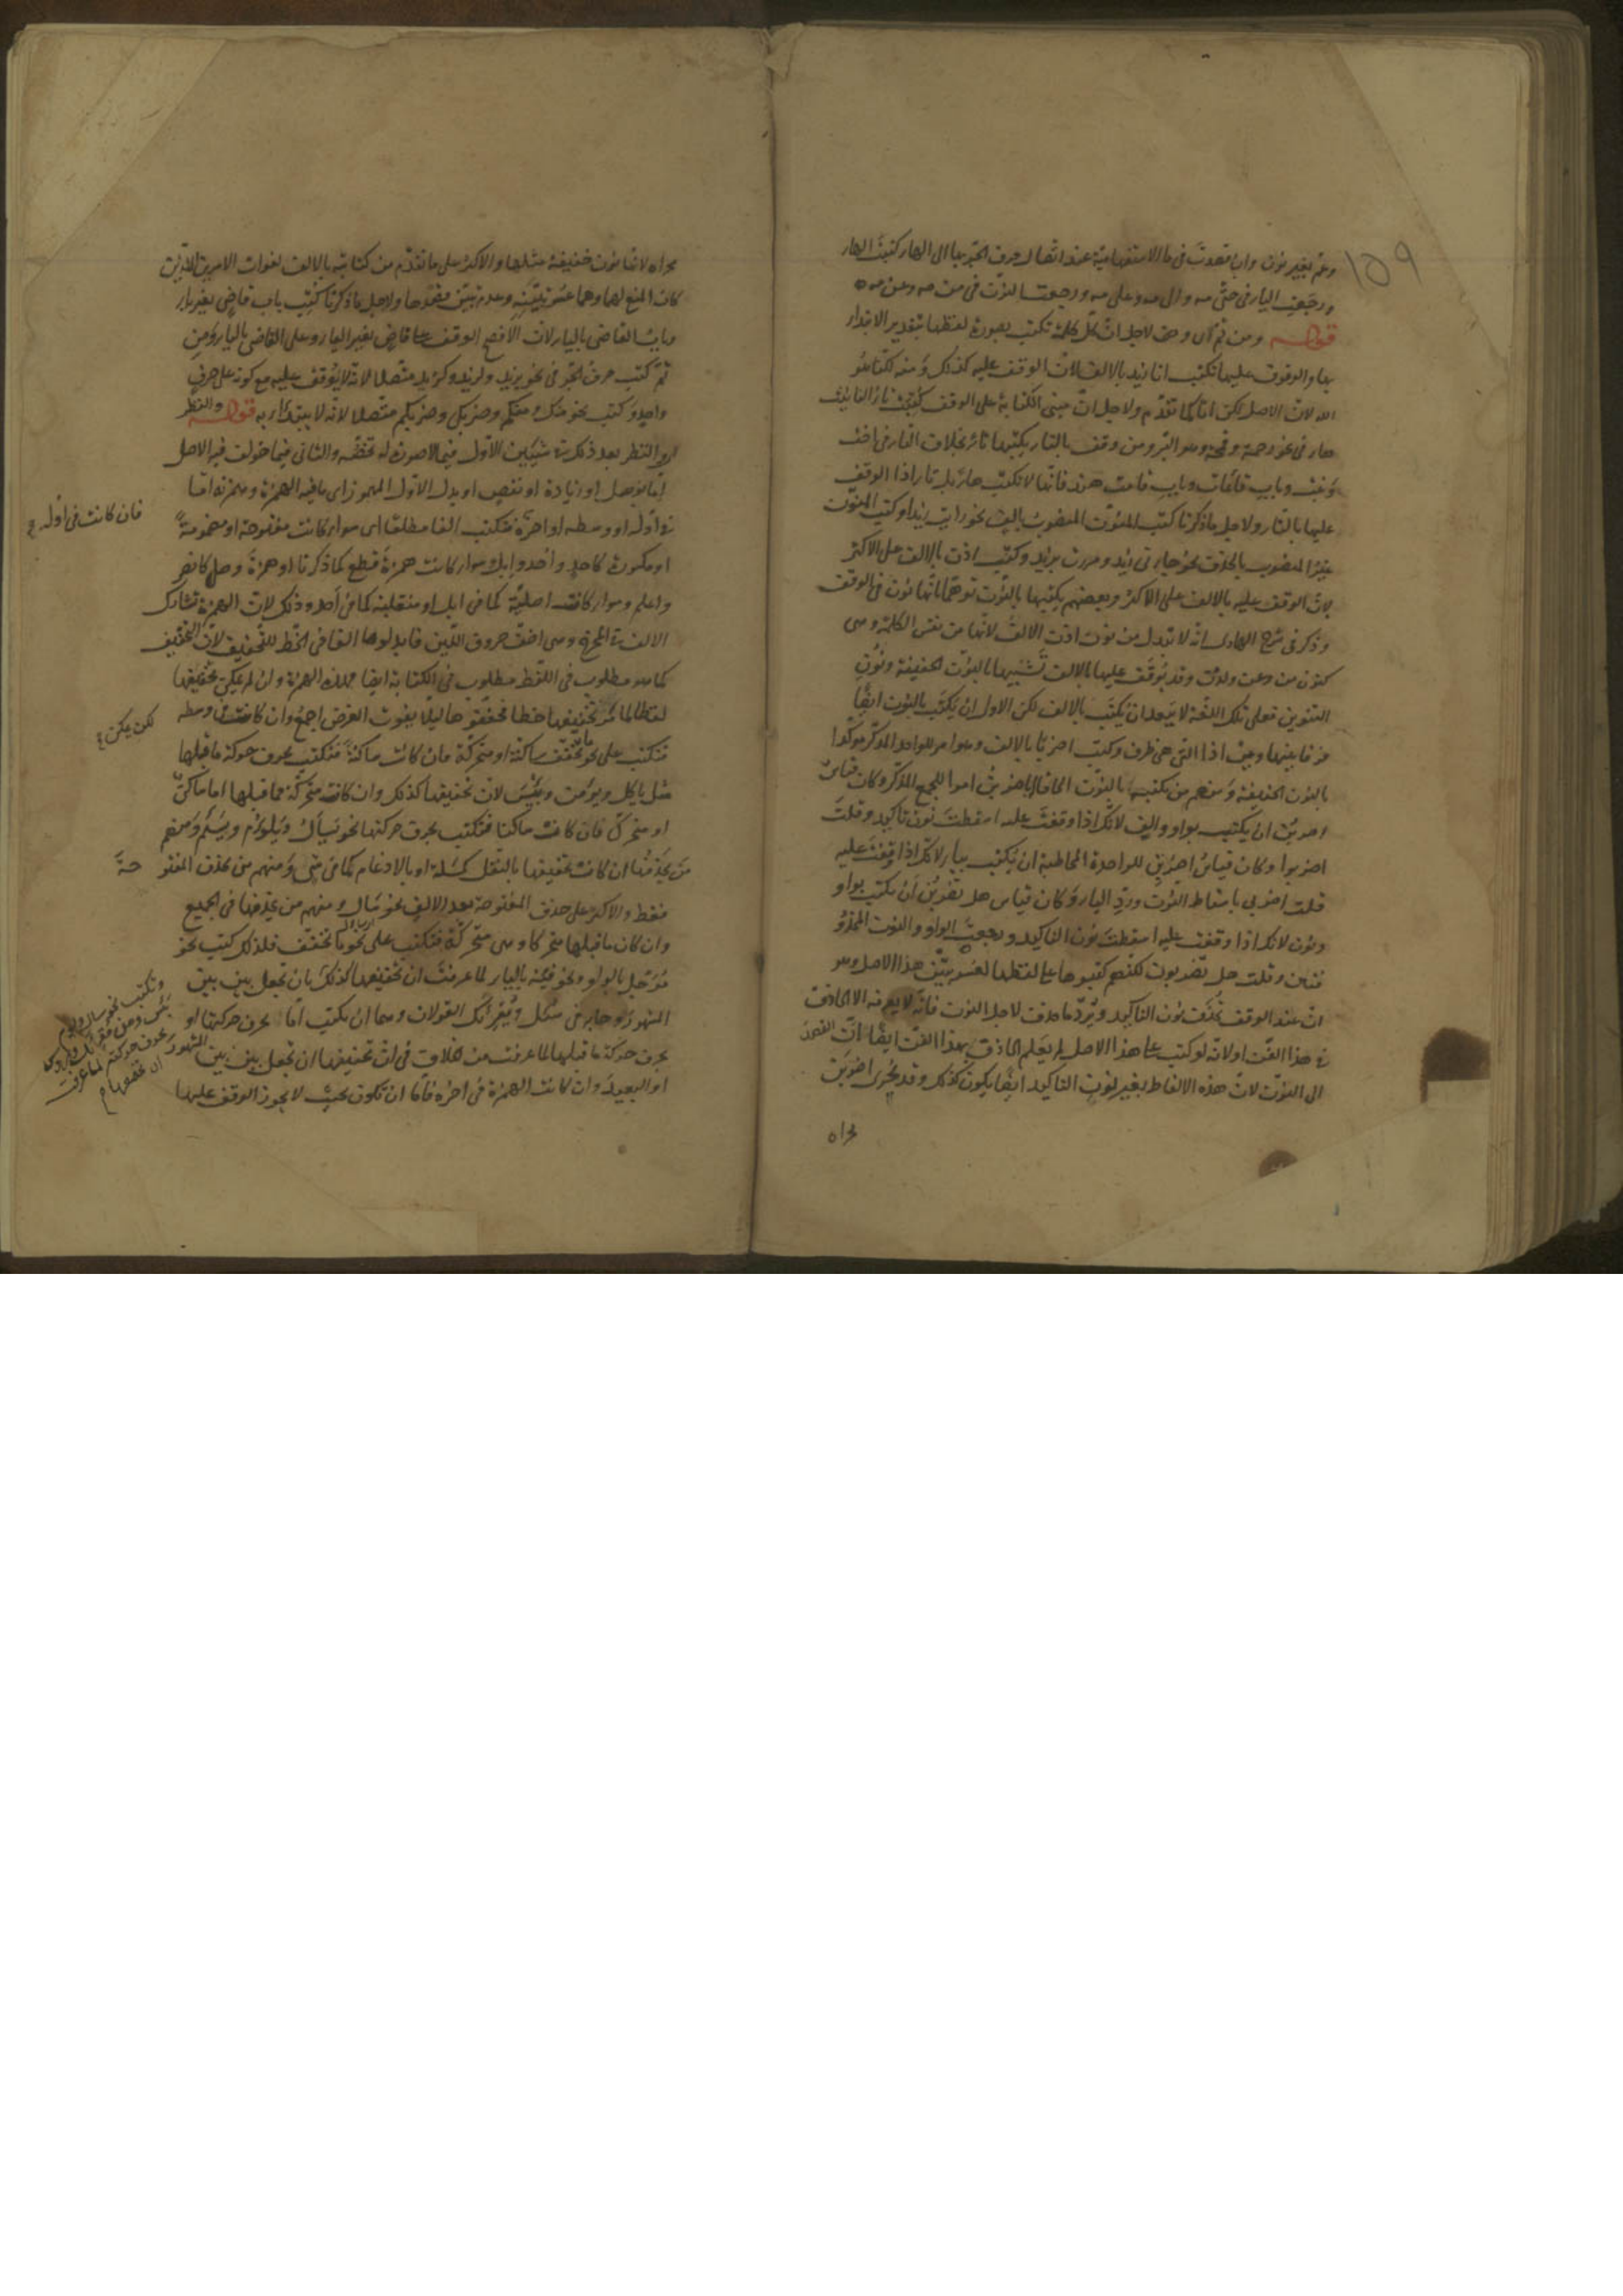 ١٥٩
وعم بغير نون وان قصدت في ما الاستفهامية عند اتصال حرف الجر بها الى الهاء كتبت الهاء
ورجعت الياء في حتى مه والى مه وعلى مه ورجعت النون في من مه وعن مه
قوله ومن ثم اى ومن لاجل ان كل كلمة تكتب بصورة لفظها بتقدير الابتداء
بها والوقوف عليها تكتب انا زيد بالالف لان الوقف عليه كذلك ومنه لكنا هو
الله لان الاصل لكن انا كما تقدم ولاجل ان مبنى الكتابة على الوقف كتبت تاء التانيث
هاء في نحو رحمة وقمحة وهو البر ومن وقف بالتاء يكتبها تاء بخلاف التاء في اخت
وبنت وباب قائمات وباب قامت هند فانها لا تكتب هاء بل تاء اذا الوقف
عليها بالتاء ولاجل ما ذكرنا كتب المنون المنصوب بالف نحو رايت زيدا وكتب المنون
غير المنصوب بالحذف نحو جاءني زيد ومررت بزيد وكتب اذن بالالف على الاكثر
لان الوقف عليه بالالف على الاكثر وبعضهم يكتبها بالنون توهما انها نون في الوقف
وذكر في شرح الهادى انه لا تبدل من نون اذن الالف لانها من نفس الكلمة وهى
كنون من وعن ولدن وقد يوقف عليها بالالف تشبيها بالنون الخفيفة ونون
التنوين فعلى تلك اللغة لا يبعد ان يكتب بالالف لكن الاولى ان يكتب بالنون ايضا
فرقا بينها وبين اذا التى هى ظرف وكتب اضربا بالالف وهو امر للواحد المذكر مؤكدا
بالنون الخفيفة ومنهم من يكتبه بالنون الحاقا باضربن امرا للجمع المذكر وكان قياس
اضربن ان يكتب بواو والف لانك اذا وقفت عليه اسقطت نون تاكيد وقلت
اضربوا وكان قياس اضربن للواحدة المخاطبة ان يكتب بياء لانك اذا وقفت عليه
قلت اضربي باسقاط النون ورد الياء وكان قياس هل تضربن ان يكتب بواو
ونون لانك اذا وقفت عليه اسقطت نون التاكيد ورجعت الواو والنون المحذو
فتان وقلت هل تضربون لكنهم كتبوها على لفظها لعسر تبين هذا الاصل وهو
ان عند الوقف تحذف نون التاكيد ويرد ما حذف لاجل النون فانه لا يعرفه الا الحاذق
في هذا الفن اولانه لو كتب على هذا الاصل لم يعلم الحاذق بهذا الفن ايضا ان القصد
الى النون لان هذه الالفاظ بغير نون التاكيد ايضا يكون كذلك وقد يجرى اضربن
مجراه
مجراه لانها نون خفيفة مثلها والاكثر على ما تقدم من كتابته بالالف لفوات الامرين اللذين
كان المنع لهما وهما عسر تبينه وعدم تبين قصدها ولاجل ما ذكرنا كتب باب قاض بغير ياء
وباب القاضى بالياء لان الافصح الوقف على قاض بغير الياء وعلى القاضى بالياء ومن
ثم كتب حرف الجر في نحو بزيد ولزيد وكزيد متصلا لانه لا يوقف عليه مع كونه على حرف
واحد وكتب نحو منك ومنكم وضربك وضربكم متصلا لانه لا يبتدأ به قوله والنظر
اى والنظر بعد ذكر ته شيئين الاول فيما لا صورة له تخصه والثانى فيما خولف فيه الاصل
اما بوصل او زيادة او نقص او بدل الاول المهموز اى ما فيه الهمزة وهمزته اما
في اوله او وسطه او اخره فتكتب الفا مطلقا اى سواء كانت مفتوحة او مضمومة
فان كانت في اوله
او مكسورة كاحد واُحد وابل وسواء كانت همزة قطع كما ذكرنا او همزة وصل كانصر
واعلم وسواء كانت اصلية كما في ابل او منقلبة كما في احد وذلك لان الهمزة تشارك
الالف في المخرج وهى اخف حروف اللين فابدلوها الفا في الخط للتخفيف لان التخفيف
كما هو مطلوب في اللفظ مطلوب في الكتابة ايضا فهذه الهمزة وان لم يمكن تخفيفها
لفظا لما مر تخفيفها خطا فخففوها ليلا يفوت الغرض اجمع وان كانت في وسطه
لكن يمكن
فتكتب على نحو ما تخفف ساكنة او متحركة فان كانت ساكنة فتكتب بحرف حركة ما قبلها
مثل ياكل ويؤمن وبئس لان تخفيفها كذلك وان كانت متحركة فما قبلها اما ساكن
او متحرك فان كانت ساكنا فتكتب بحرف حركتها نحو يسأل ويلؤم ويسئم ومنهم
من يحذفها ان كانت تخفيفها بالنقل كمسلة او بالادغام كما في شى ومنهم من يحذف المفتو حة
فقط والاكثر على حذف المفتوحة بعد الالف نحو سال ومنهم من يحذفها في الجميع
وان كان ما قبلها متحركا وهى متحركة فتكتب على نحو ما تخفف فلذلك كتب نحو
مؤجل بالواو ونحو فئة بالياء لما عرفت ان تخفيفها كذلك بان تجعل بين بين
المشهور وجاء في سئل ويقرئك القولان وهما ان يكتب اما بحرف حركتها او
بحرف حركة ما قبلها لما عرفت من الخلاف في ان تخفيفها ان تجعل بين بين المشهور
او البعيد وان كانت الهمزة في اخره فاما ان تكون بحيث لا يجوز الوقف عليها